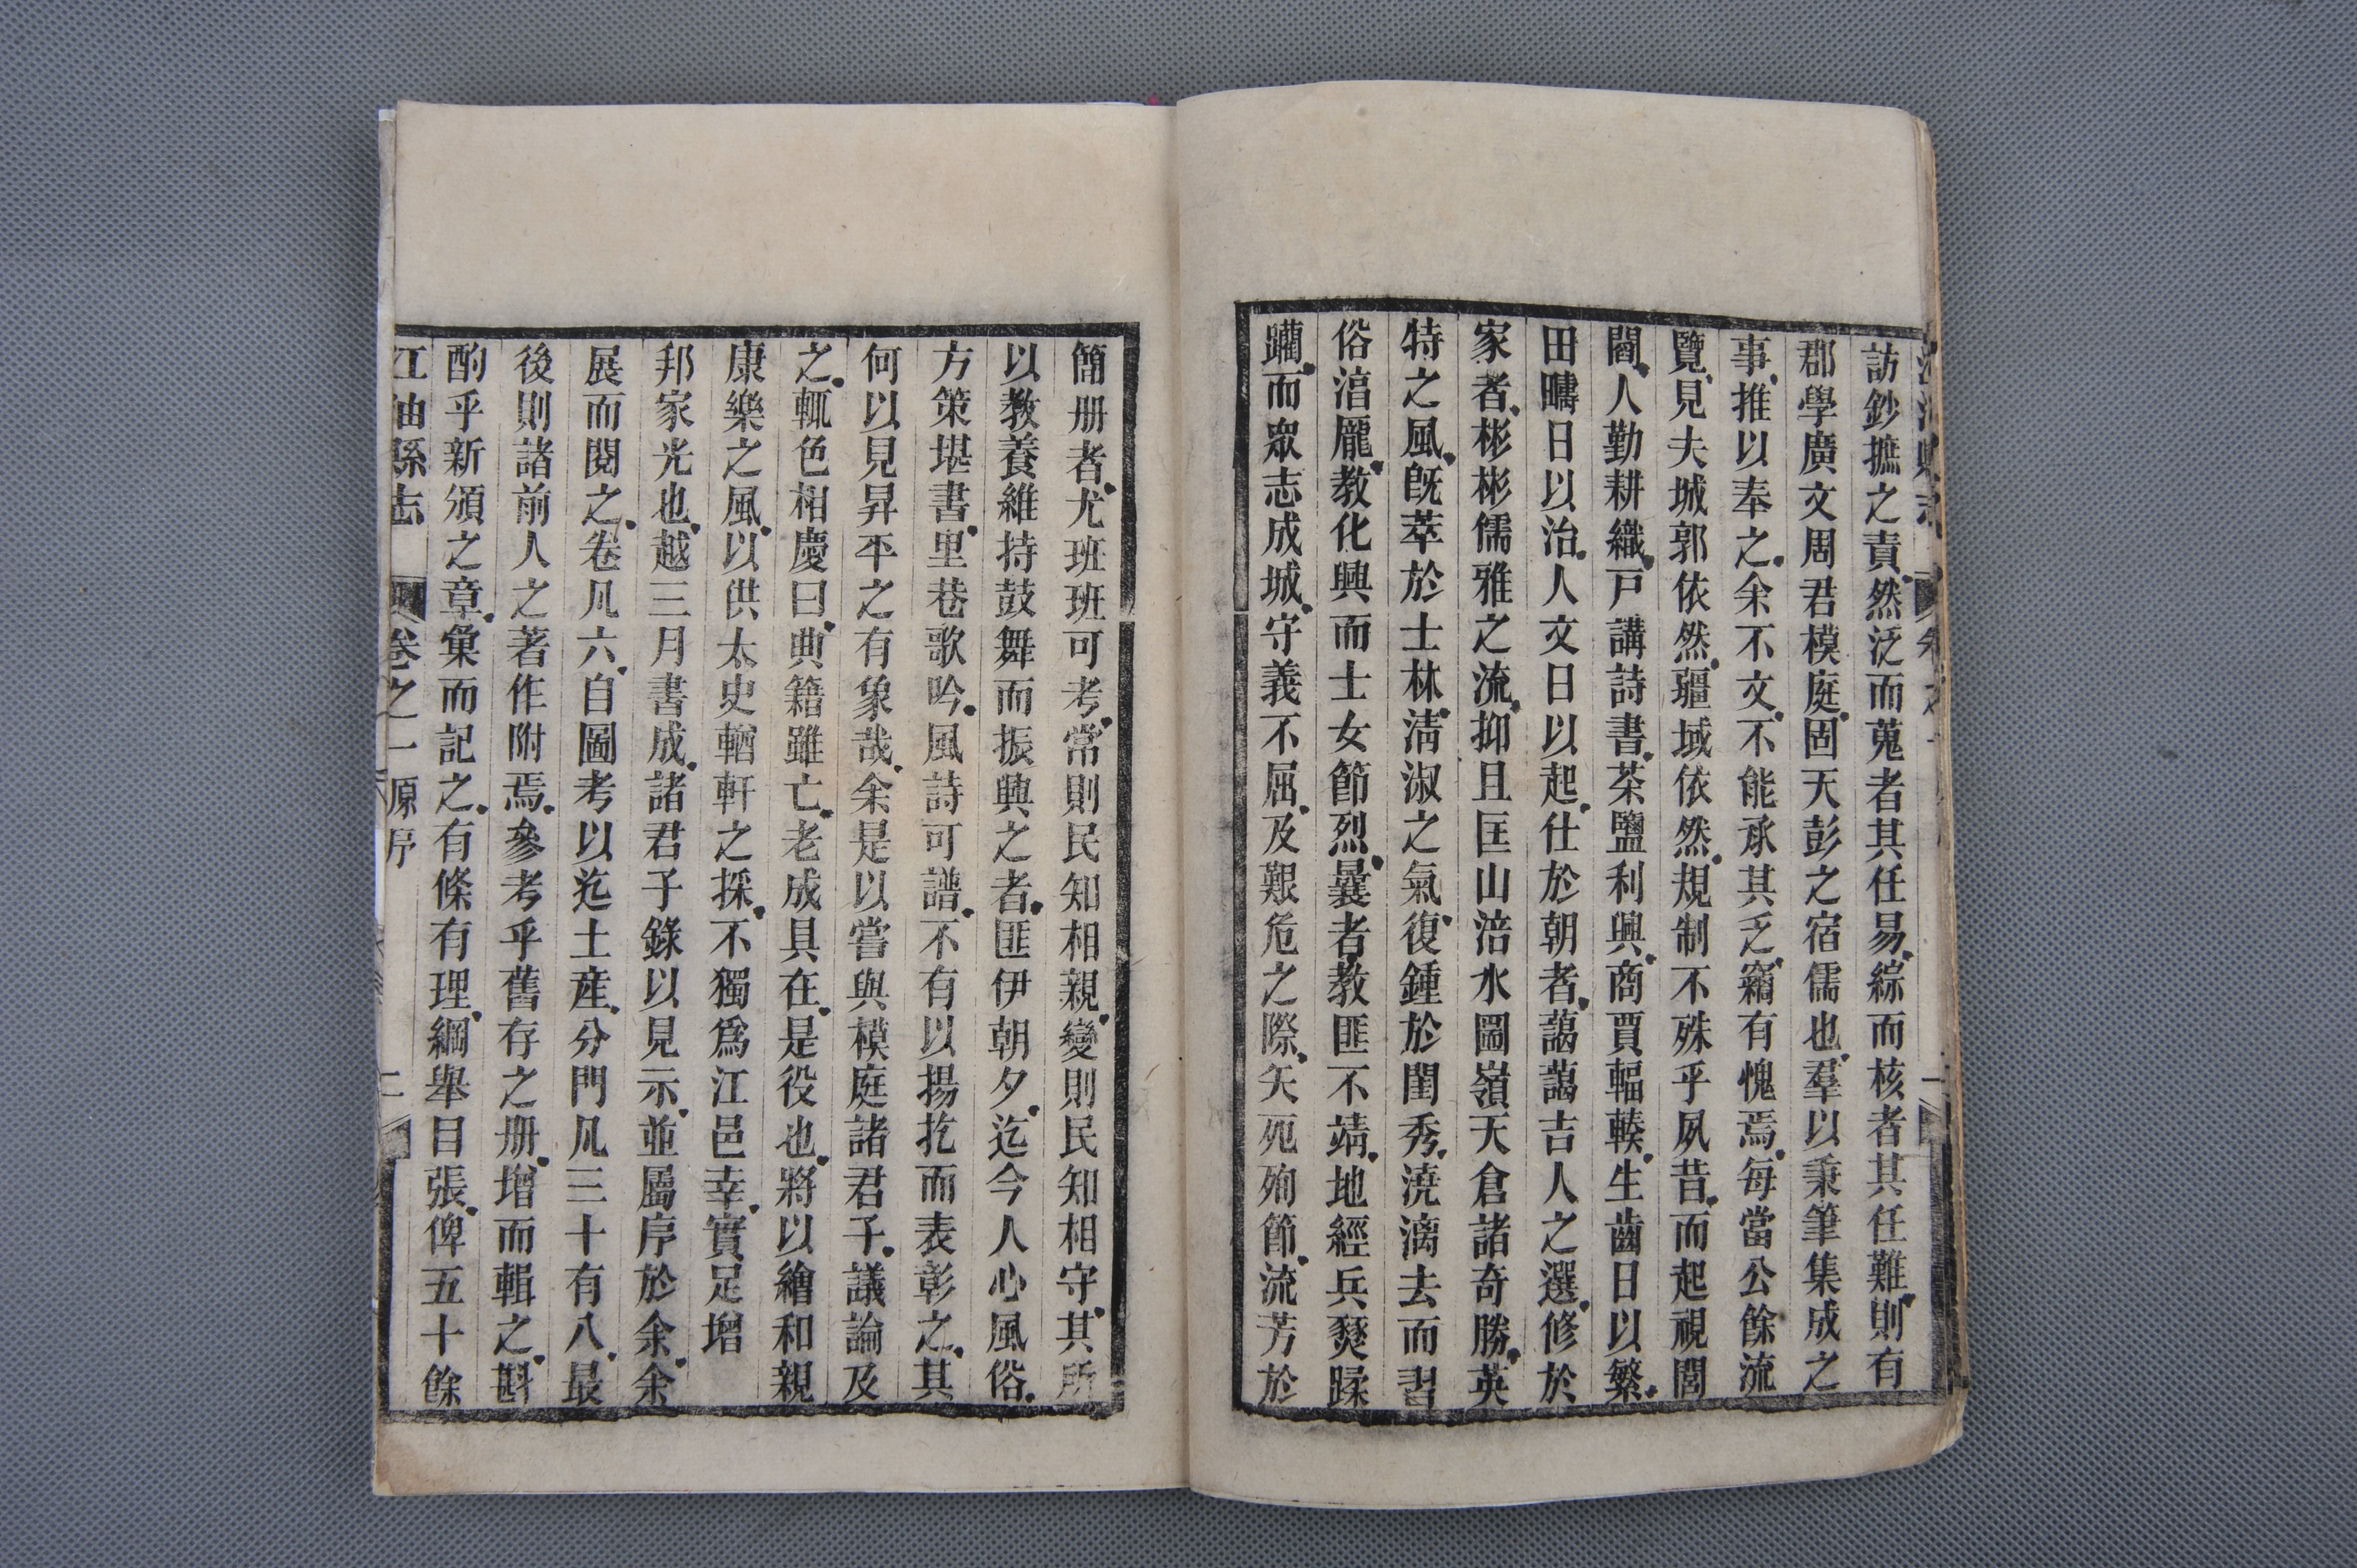 訪鈔摭之責然泛而蒐者其任易綜而核者其任難則有
郡學廣文周君模庭固天彭之宿儒也羣以秉筆集成之
事推以奉之余不文不能承其乏竊有愧焉每當公餘流
覽見夫城郭依然疆域依然規制不殊乎夙昔而起視閭
閻人勤耕織戸講詩書茶鹽利興商賈輻輳生齒日以繁
田疇日以治人文日以起仕於朝者藹藹吉人之選修於
家者彬彬儒雅之流抑且匡山涪水圖嶺天倉諸奇勝英
特之風旣萃於士林淸淑之氣復鍾於閨秀澆漓去而習
俗湻龐教化興而士女節烈曩者教匪不靖地經兵燹蹂
躪而眾志成城守義不屈及艱危之際矢死殉節流芳於
簡册者尤班班可考常則民知相親變則民知相守其所
以教養維持鼓舞而振興之者匪伊朝夕迄今人心風俗
方策堪書里巷歌吟風詩可譜不有以揚扢而表彰之其
何以見昇平之有象哉余是以嘗與模庭諸君子議論及
之輒色相慶曰典籍雖亡老成具在是役也將以繪和親
康樂之風以供太史輶軒之採不獨爲江邑幸實足增
邦家光也越三月書成諸君子錄以見示並屬序於余余
展而閱之卷凡六自圖考以迄土產分門凡三十有八最
後則諸前人之著作附焉參考乎舊存之册增而輯之斟
酌乎新頒之章彙而記之有條有理綱舉目張俾五十餘
江油縣志 卷之一 原序 二